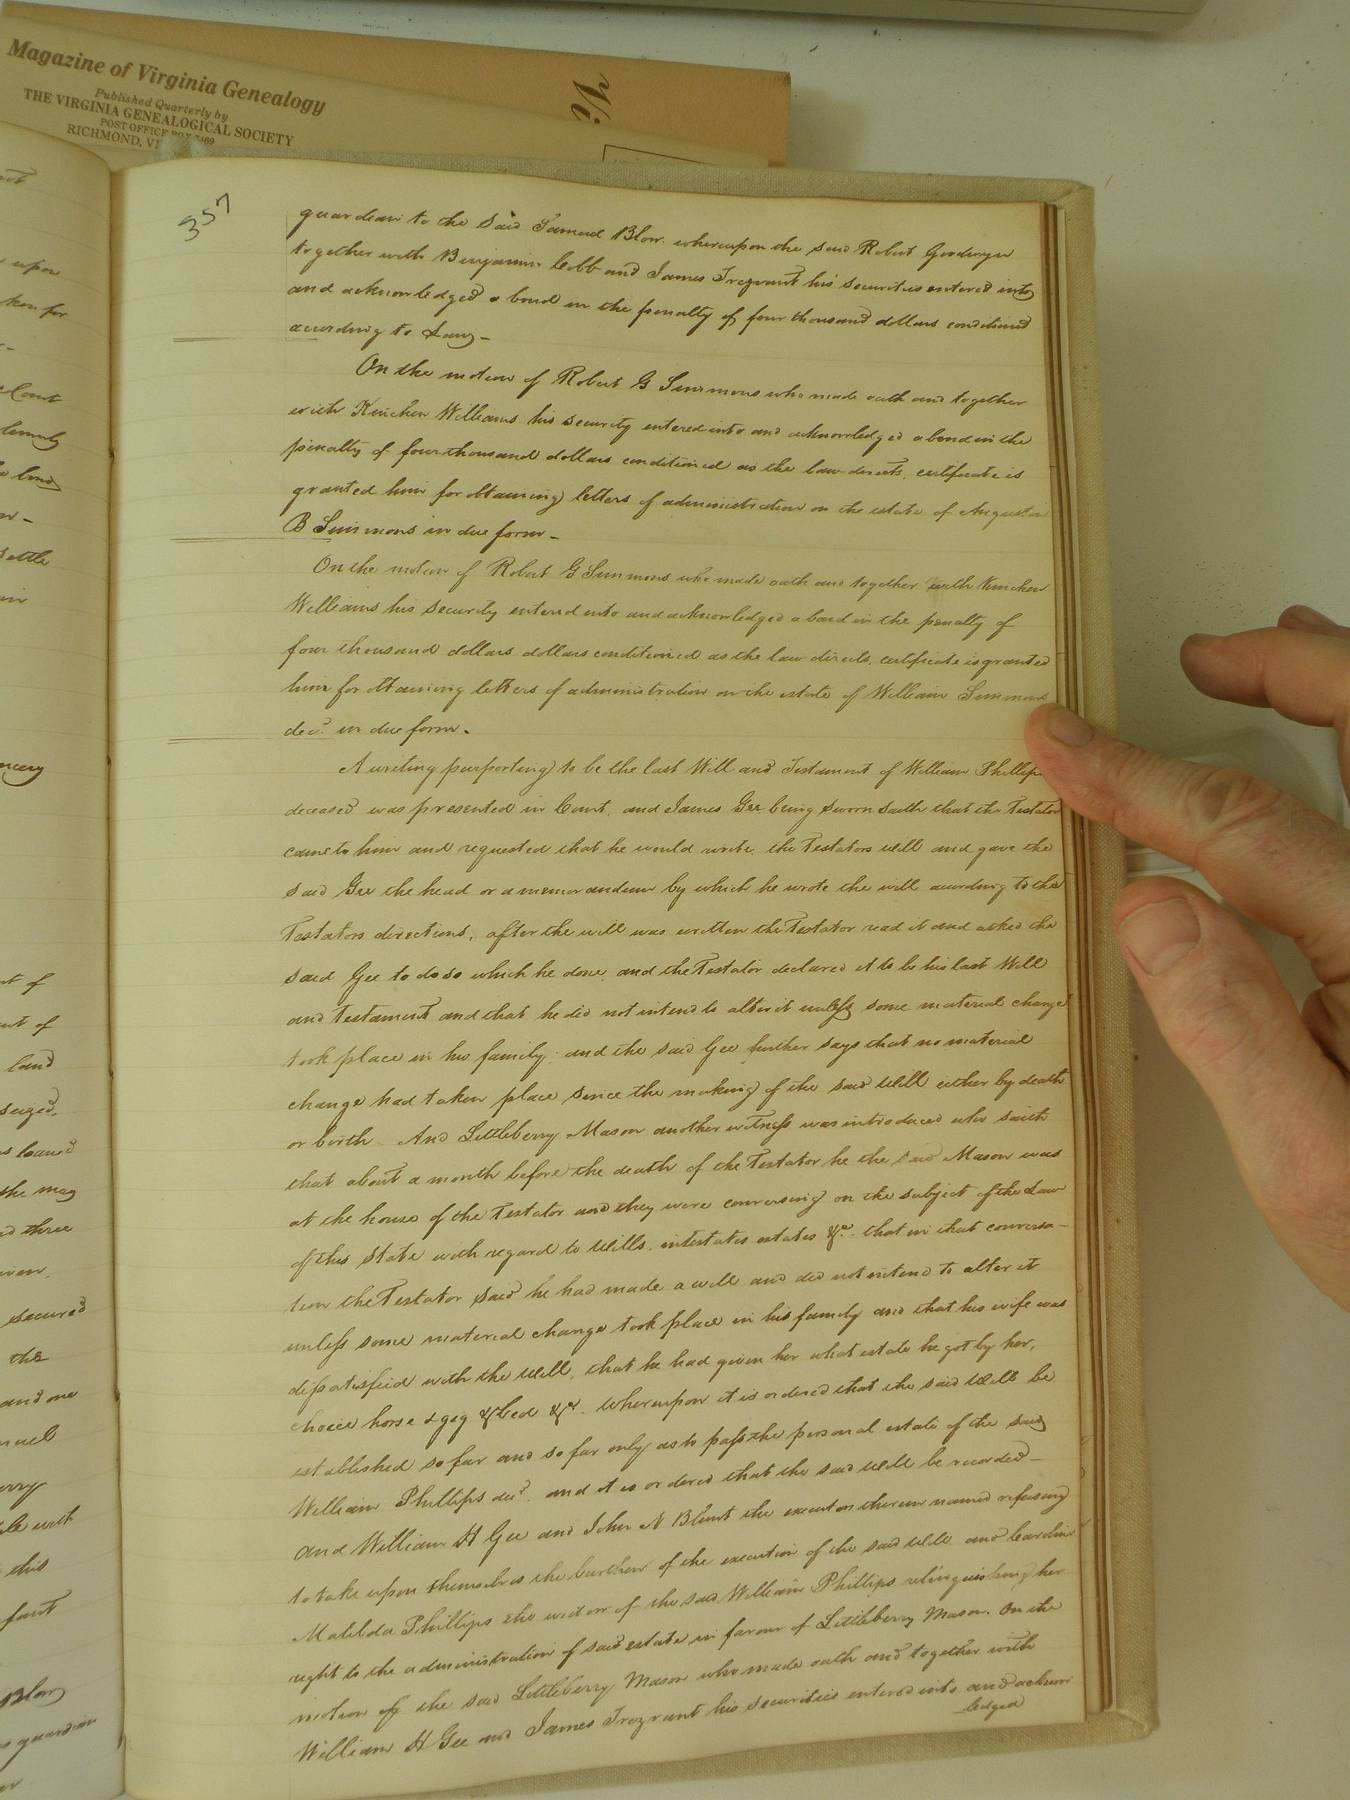 Magazine of Virginia Genealogy
Published Quarterly by
THE VIRGINIA GENEALOGICAL SOCIETY
POST OFFICE BOX 7469
RICHMOND, VI
Vi
357
guardian to the said Samuel Blow. whereupon the said Robert Goodwyn
together with Benjamin Cobb and James Trezvant his securities entered into
and acknowledged a bond in the penalty of four thousand dollars conditioned
according to Law –
On the motion of Robert G Simmons who made oath and together
with Kinchen Williams his security entered into and acknowledged a bond in the
penalty of four thousand dollars conditioned as the law directs, certificate is
granted him for obtaining letters of administration on the estate of Augustin
B Simmons in due form –
On the motion of Robert G Simmons who made oath and together with Kinchen
Williams his security entered into and acknowledged a bond in the penalty of
four thousand dollars dollars conditioned as the law directs, certificate is granted
him for obtaining letters of administration on the estate of William Simmons
decd. in due form.
A writing purporting to be the last Will and Testament of William Phillips
deceased was presented in Court, and James Gee being sworn saith that the Testator
came to him and requested that he would write, the Testators will and gave the
said Gee the head or a memorandum by which he wrote the will according to the
Testators directions, after the will was written the Testator read it and asked the
said Gee to do so which he done, and the Testator declared it to be his last Will
and testament and that he did not intend to alter it unless some material change
took place in his family; and the said Gee further says that no material
change had taken place since the making of the said Will either by death
or birth And Littleberry Mason another witness was introduced who saith
that about a month before the death of the Testator he the said Mason was
at the house of the Testator and they were conversing on the subject of the Law
of this State with regard to Wills, intestates estates &c. that in that conversa–
tion the Testator said he had made a will and did not intend to alter it
unless some material change took place in his family and that his wife was
dissatisfied with the Will, that he had given her what estate he got by her,
choice horse & gig & bed &c. Whereupon it is ordered that the said Will be
established so far and so far only as to pass the personal estate of the said
William Phillips decd. and it is ordered that the said Will be recorded –
And William H Gee and John N Blunt the executors therein named refusing
to take upon themselves the burthen of the execution of the said Will and
Matilda Phillips the widow of the said William Phillips relinquishing her
right to the administration of said estate in favour of Littleberry Mason. On the
motion of the said Littleberry Mason who made oath and together with
William H Gee and James Trezvant his securities entered into and acknow
ledged